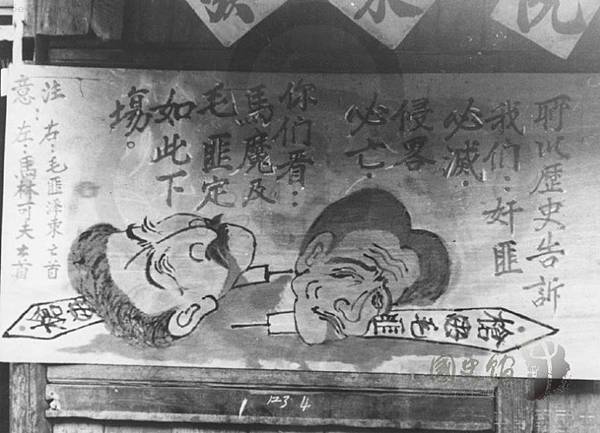 聊以歷史告訴
我们：奸匪
必滅．
侵畧
必亡．
你们看：
馬魔及
毛匪定
如此下
塲。
注 右：毛匪澤東亡首
意：左：馬林可夫亡首
毛匪
1 123 4
國史館